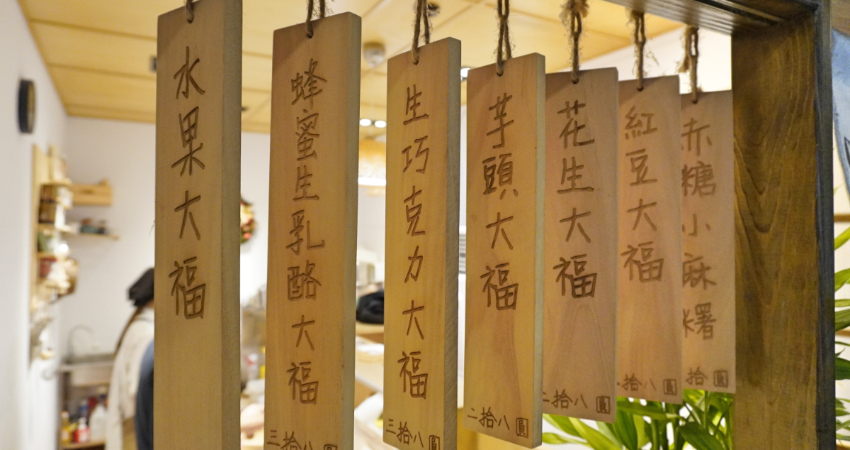 水果大福
蜂蜜生乳酪大福
三拾八圓
生巧克力大福
三拾八圓
芋頭大福
二拾八圓
花生大福
二拾八圓
紅豆大福
拾八圓
赤糖小麻糬
拾圓